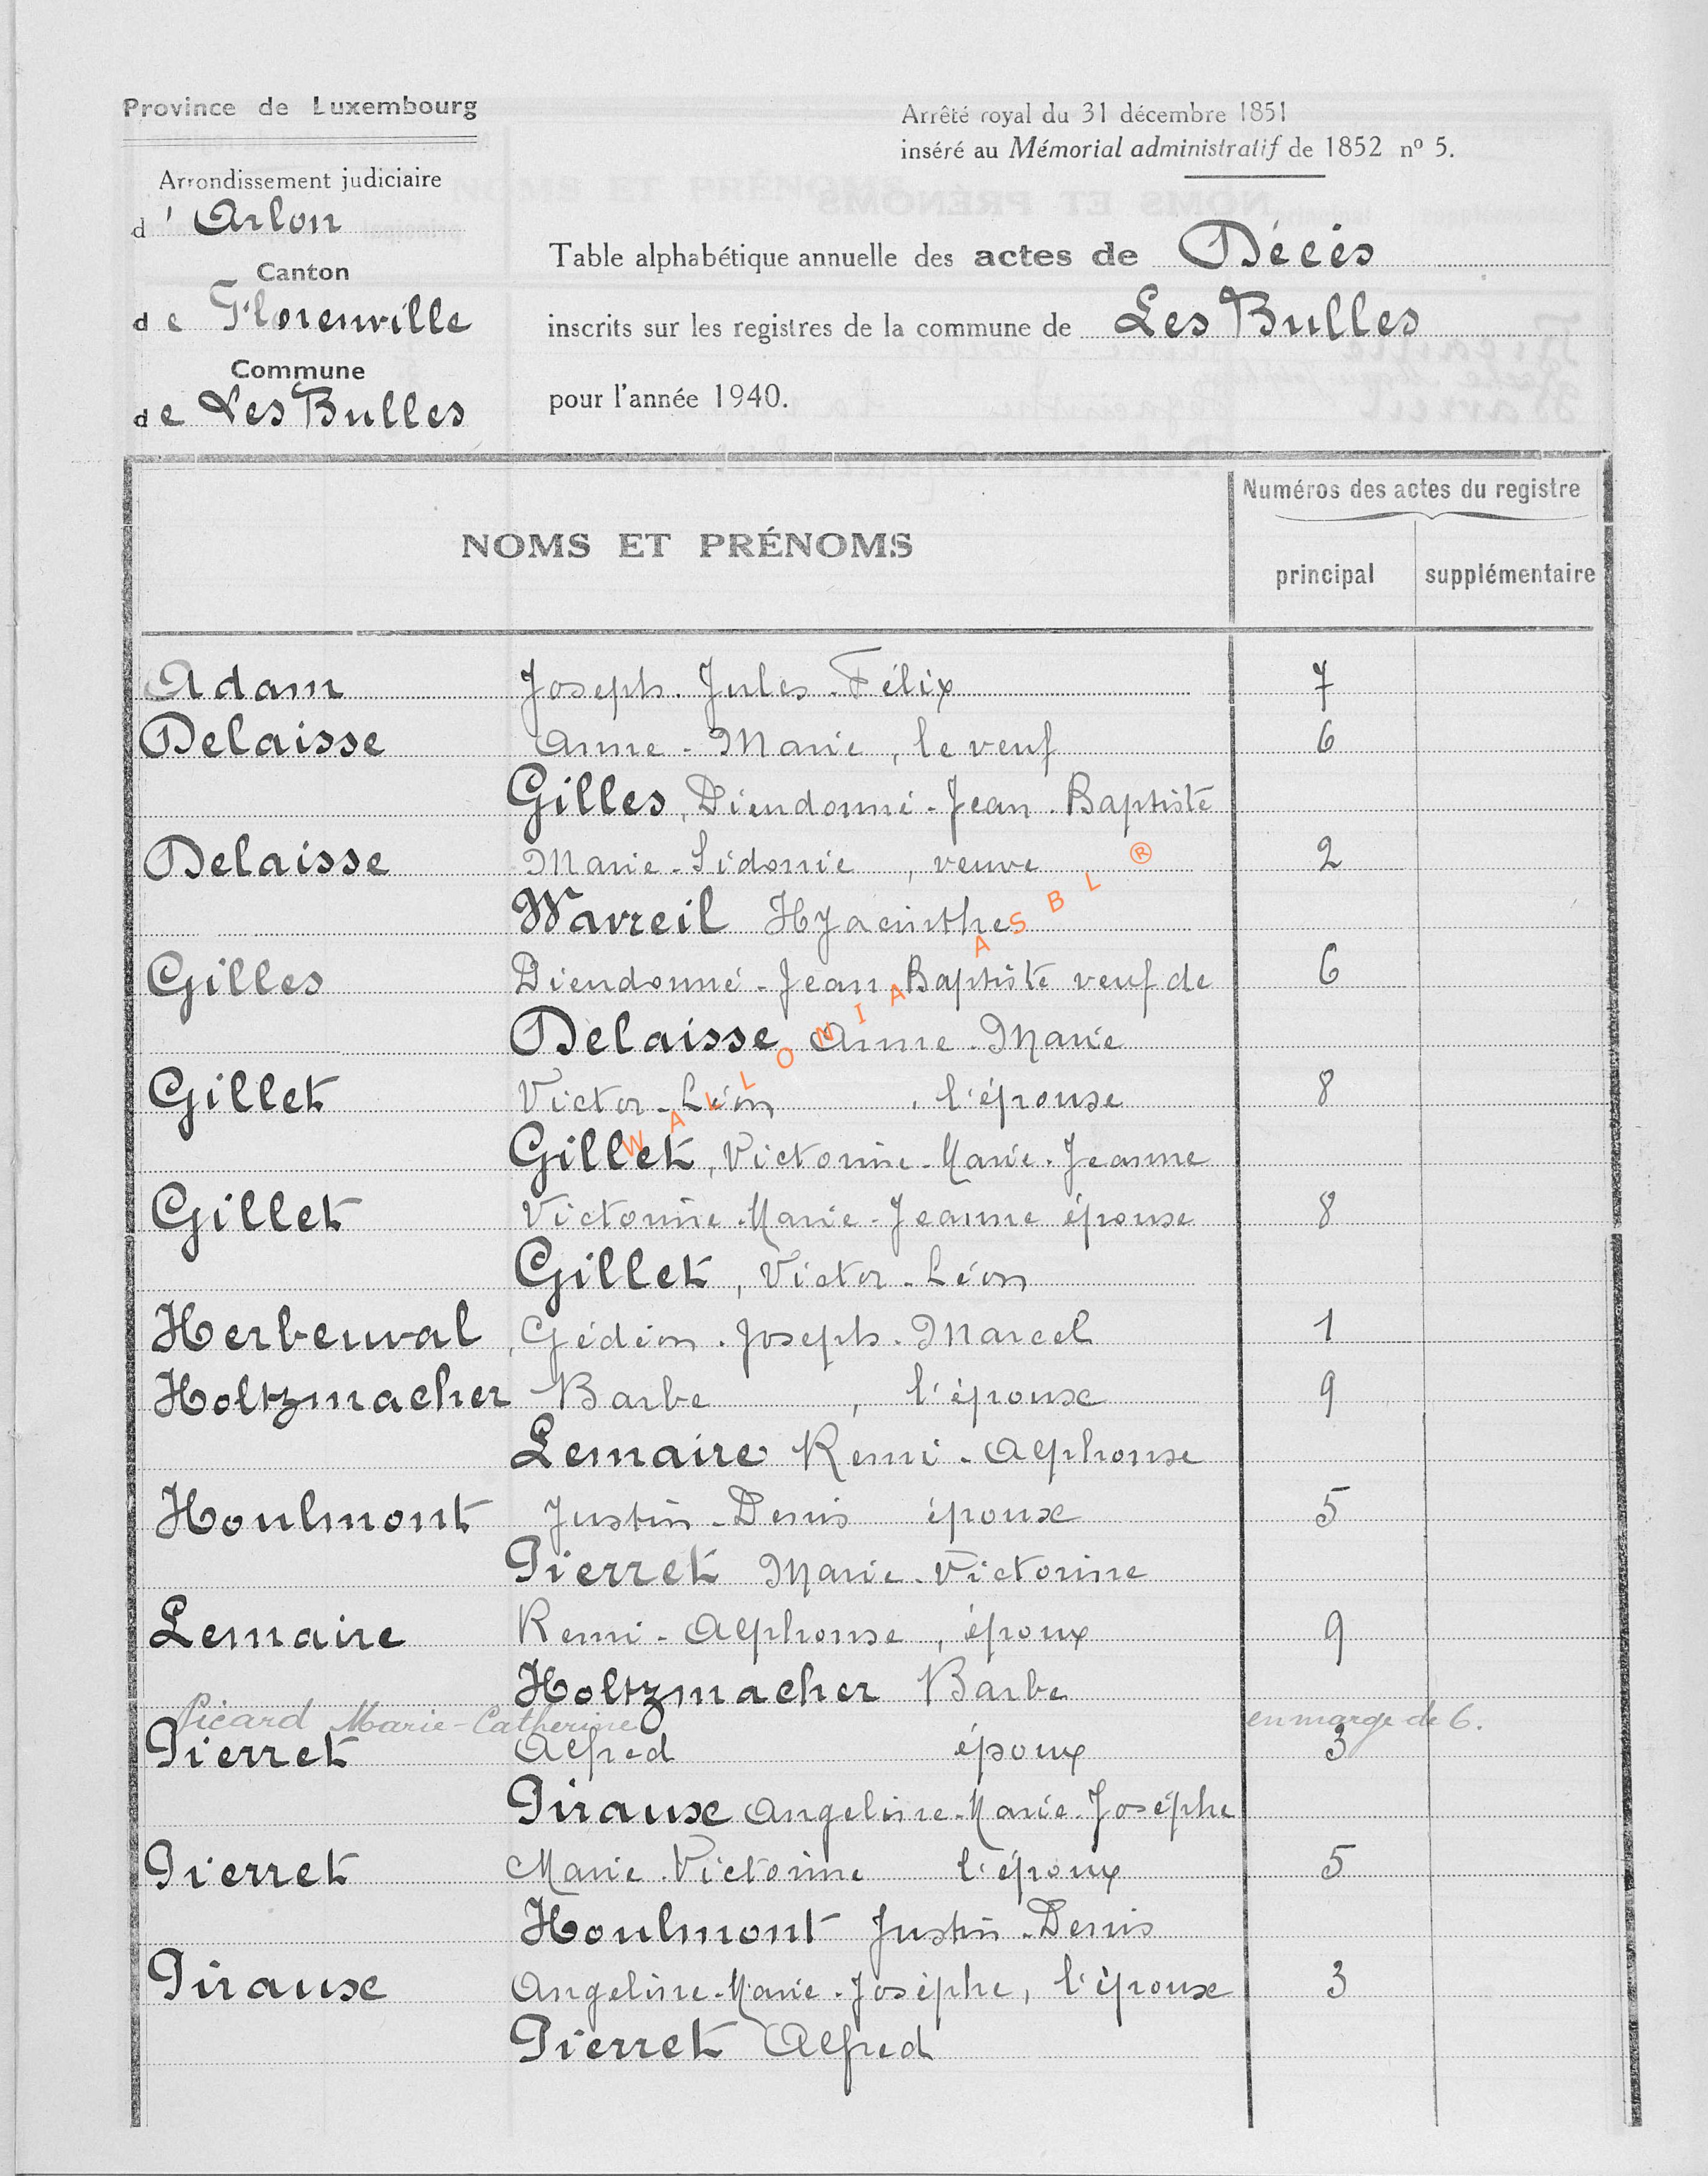 Province de Luxembourg
Arrêté royal du 31 décembre 1851
inséré au Mémorial administratif de 1852 nº 5.
Arrondissement judiciaire
d' Arlon
Canton
de Florenville
Commune
de Les Bulles
Table alphabétique annuelle des actes de Décès
inscrits sur les registres de la commune de Les Bulles
pour l'année 1940.
NOMS ET PRÉNOMS
Numéros des actes du registre
principal supplémentaire
Adam Joseph-Jules-Félix 7
Delaisse Anne-Marie, le veuf 6
Gilles, Dieudonné-Jean-Baptiste
Delaisse Marie-Sidonie, veuve 2
Wavreil Hyacinthe
Gilles Dieudonné-Jean Baptiste veuf de 6
Delaisse Anne-Marie
Gillet Victor-Léon, l'épouse 8
Gillet, Victorine-Marie-Jeanne
Gillet Victorine-Marie-Jeanne épouse 8
Gillet, Victor-Léon
Herbeuval, Gédéon-Joseph-Marcel 1
Holtzmacher Barbe, l'époux 9
Lemaire Remi-Alphonse
Houlmont Justin-Denis époux 5
Pierret Marie-Victorine
Lemaire Remi-Alphonse, époux 9
Holtzmacher Barbe
Picard Marie-Catherine en marge de 6.
Pierret Alfred époux 3
Piraux Angeline-Marie-Josèphe
Pierret Marie-Victorine l'époux 5
Houlmont Justin-Denis
Piraux Angeline-Marie-Josèphe, l'époux 3
Pierret Alfred
WALLONIA ASBL ®